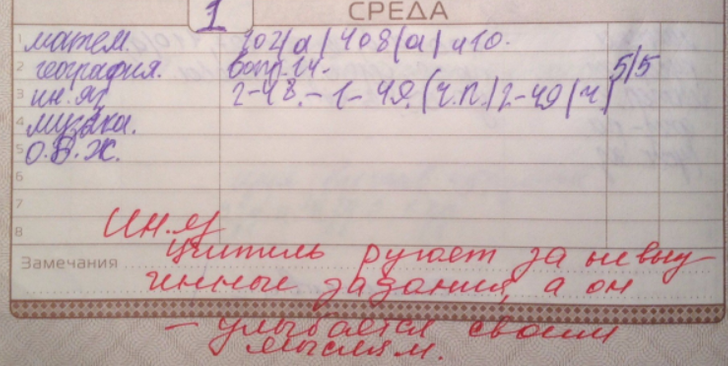 1 СРЕДА
1 матем. 102(а) 408(а) и 10.
2 география. вопр. 14. 5/5
3 ин. яз 2-48. - 1-49. (ч.п.) 2-49 (ч.)
4 музыка.
5 О.Б.Ж.
6
7
8 Ин. яз
Замечания Учитель ругает за невыу
ченные задания, а он
- улыбается своим
мыслям.